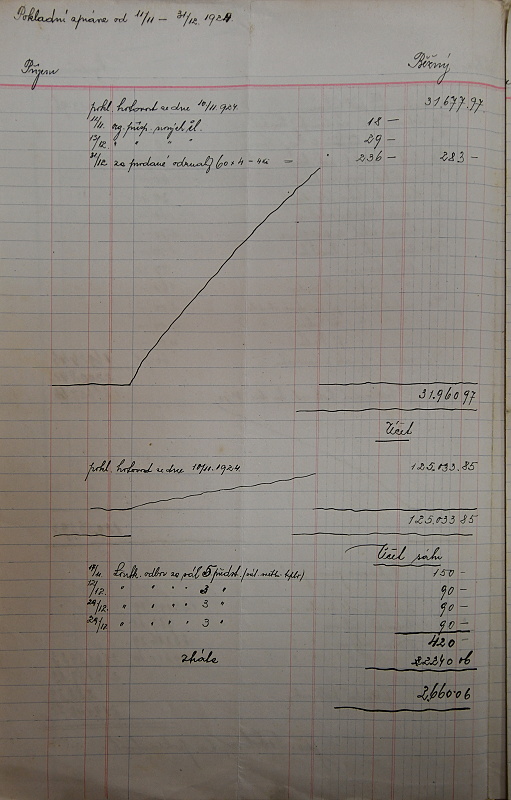 Pokladní zpráva od 11/11 – 31/12. 1924
Příjem Běžný
pokl. hotovost ze dne 10/11. 924. 31.677.97.
11/11. org. přísp. nových čl. 18 –
13/12. " " " " 29 –
31/12. za prodané odznaky 60 x 4 – = 236 – 283 –
31.960 97
Účet
pokl. hotovost ze dne 10/11. 1924. 125.033.85
125.033 85
Účet sálu
odbor za sál 5 předst. 150 –
12/12. " " " " 3 " 90 –
" " " " 3 " 90 –
29/12 " " " " 3 " 90 –
420 –
2240 06
2.660 06